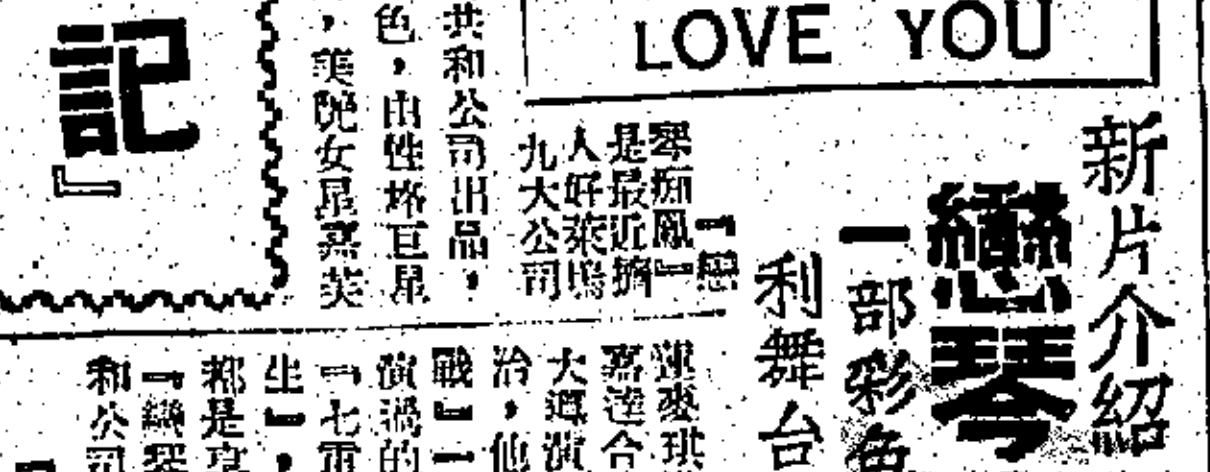 LOVE YOU
新片介紹
戀琴
一部彩色
利舞台
『戀
琴痴鳳』
是最近擠
人好萊塢
九大公司
共和公司出品，
色，由性格巨星
，美艷女星
蓮麥琪
嘉達合
大導演
治，他
戰』一
演過的
『七重
坐』，
都是
『戀琴
和公司
記』